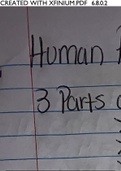 CREATED WITH XFINIUM.PDF 6.8.0.2
Human
3 Parts